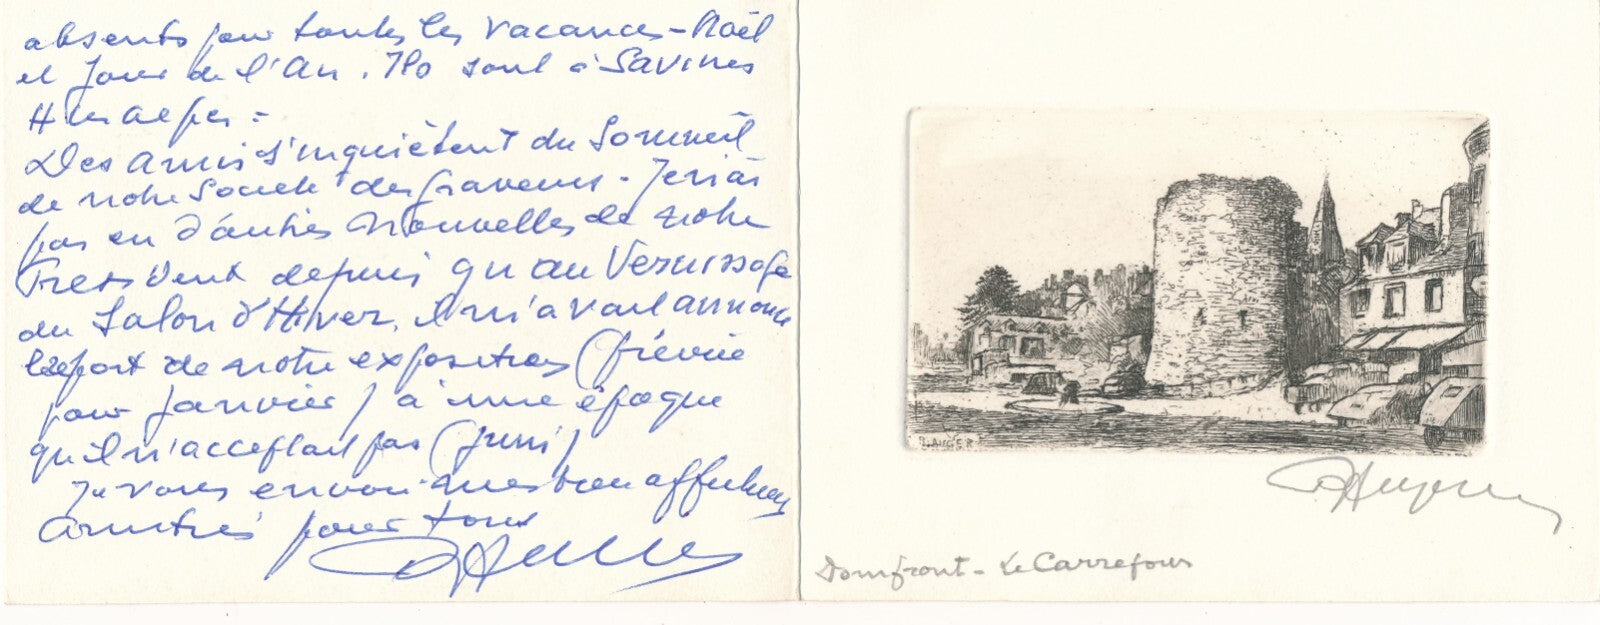 absents pour toutes les vacances - Noël
et Jour de l'An. Ils sont à Savines
Htes alpes =
Des amis s'inquiètent du Sommeil
de notre Société des graveurs - Je n'ai
pas eu d'autres nouvelles de notre
President depuis qu'au Vernissage
du Salon d'Hiver, il m'avait annoncé
report de notre exposition (prévue
pour janvier) à une époque
qu'il n'acceptait pas (juin)
Je vous envoie mes bien affectueuses
amitiés pour tous
Domfront - Le Carrefour